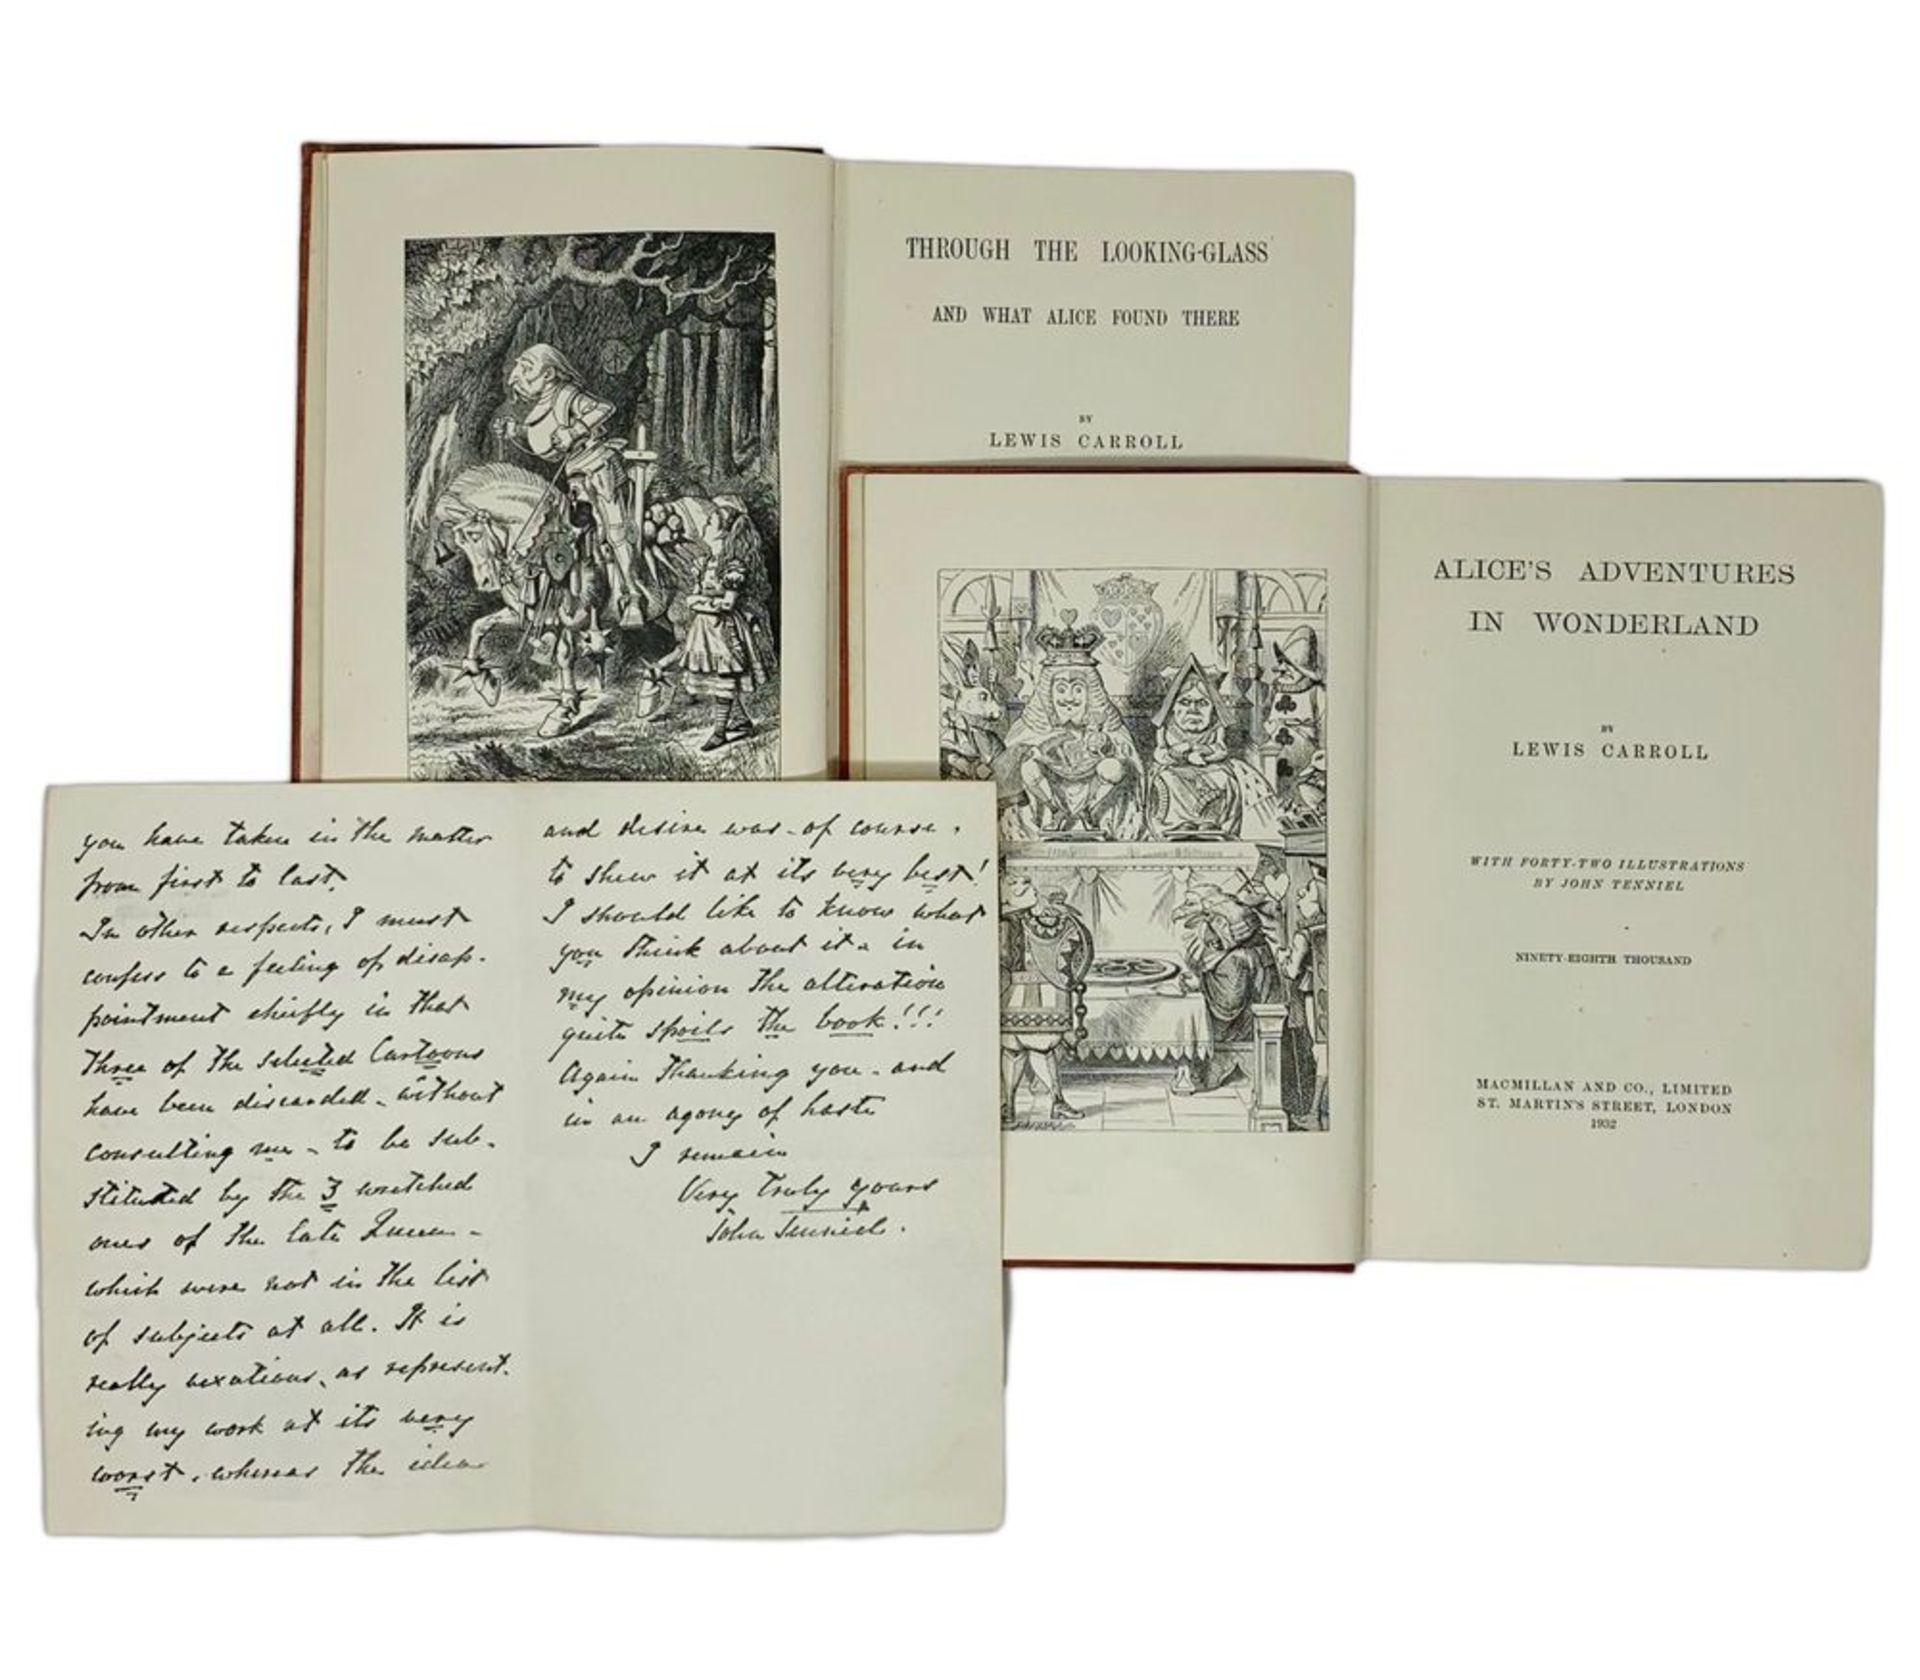 THROUGH THE LOOKING-GLASS
AND WHAT ALICE FOUND THERE
BY
LEWIS CARROLL
ALICE'S ADVENTURES
IN WONDERLAND
BY
LEWIS CARROLL
WITH FORTY-TWO ILLUSTRATIONS
BY JOHN TENNIEL
NINETY-EIGHTH THOUSAND
MACMILLAN AND CO., LIMITED
ST. MARTIN'S STREET, LONDON
1932
you have taken in the matter
from first to last.
In other respects, I must
confess to a feeling of disap-
pointment chiefly in that
three of the selected Cartoons
have been discarded - without
consulting me - to be sub-
stituted by the 3 wretched
ones of the late Queen -
which were not in the list
of subjects at all. It is
really vexatious, as represent-
ing my work at its very
worst, whereas the idea
and desire was - of course,
to shew it at its very best!
I should like to know what
you think about it - in
my opinion the alteration
quite spoils the book!!!
Again thanking you - and
in an agony of haste
I remain
Very truly yours
John Tenniel.